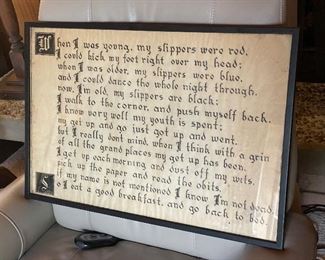 When I was young, my slippers were red,
I could kick my foot right over my head;
when I was older, my slippers were blue,
and I could dance the whole night through.
now, I'm old, my slippers are black;
I walk to the corner, and push myself back.
I know very well my youth is spent;
my get up and go just got up and went.
but I really dont mind, when I think with a grin
of all the grand places my get up has been.
I get up each morning and dust off my wits,
pick up the paper and read the obits.
if my name is not mentioned I know I'm not dead,
So I eat a good breakfast, and go back to bed